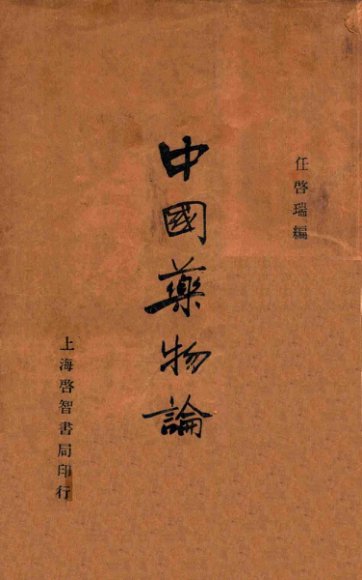 任啓瑞編
中國藥物論
上海啓智書局印行